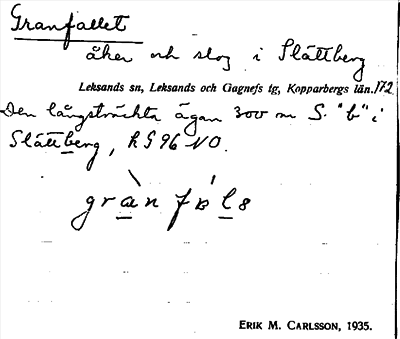 Granfallet
åker och slog i Slättberg
Leksands sn, Leksands och Gagnefs tg, Kopparbergs län. 172
Den långsträckta ägan 300 m S. "b" i
Slättberg, RS 96 NO.
gràn fɒ́ls
ERIK M. CARLSSON, 1935.